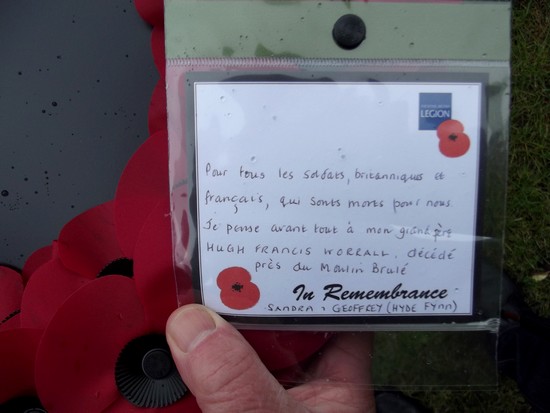 LEGION
Pour tous les soldats, britanniques et
français, qui sonts morts pour nous.
Je pense avant tout à mon grand père
HUGH FRANCIS WORRALL. décédé
près du Moulin Brulé
In Remembrance
SANDRA & GEOFFREY (HYDE FYNN)